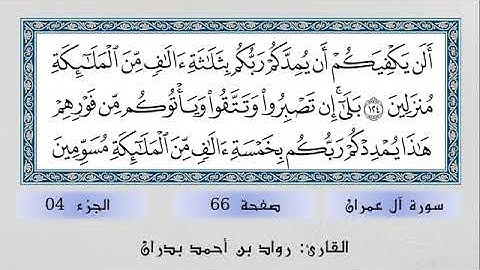 أَلَن يَكْفِيَكُمْ أَن يُمِدَّكُمْ رَبُّكُم بِثَلَٰثَةِ ءَالَٰفٍ مِّنَ ٱلْمَلَٰٓئِكَةِ
مُنزَلِينَ ١٢٤ بَلَىٰٓ إِن تَصْبِرُوا۟ وَتَتَّقُوا۟ وَيَأْتُوكُم مِّن فَوْرِهِمْ
هَٰذَا يُمْدِدْكُمْ رَبُّكُم بِخَمْسَةِ ءَالَٰفٍ مِّنَ ٱلْمَلَٰٓئِكَةِ مُسَوِّمِينَ
سورة آل عمران صفحة 66 الجزء 04
القارئ: رواد بن أحمد بدران